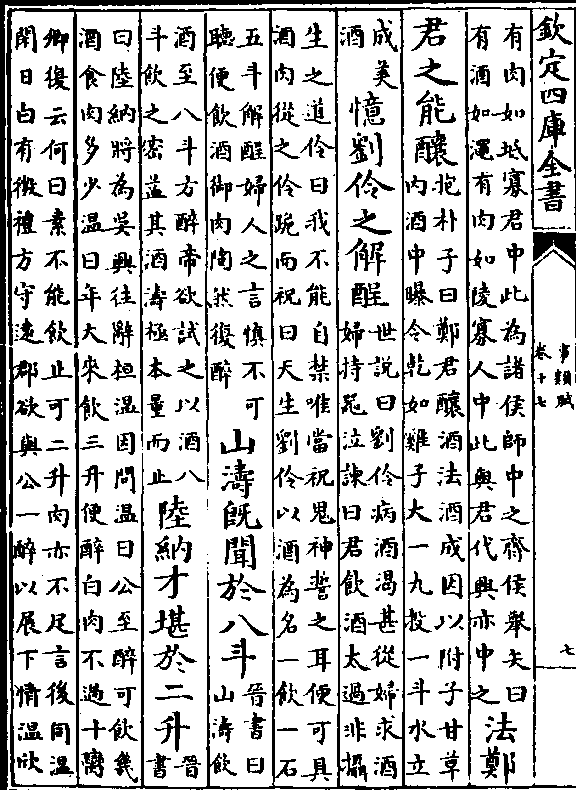 欽定四庫全書
事類賦
卷十七
七
有肉如坻寡君中此為諸侯師中之齊侯舉矢曰
有酒如澠有肉如陵寡人中此與君代興亦中之
法鄭
君之能釀
抱朴子曰鄭君釀酒法酒成因以附子甘草
内酒中曝令乾如雞子大一丸投一斗水立
成美
酒
憶劉伶之解酲
世說曰劉伶病酒渴甚從婦求酒
婦持毖泣諫曰君飲酒太過非攝
生之道伶曰我不能自禁唯當祝鬼神誓之耳便可具
酒肉從之伶跪而祝曰天生劉伶以酒為名一飲一石
五斗解酲婦人之言慎不可
聽便飲酒御肉陶然復醉
山濤既聞於八斗
晉書曰
山濤飲
酒至八斗方醉帝欲試之以酒八
斗飲之密益其酒濤極本量而止
陸納才堪於二升
晉
書
曰陸納將為吳興往辭桓温因問温曰公至醉可飲幾
酒食肉多少温曰年大來飲三升便醉白肉不過十臠
卿復云何曰素不能飲止可二升肉亦不足言後伺温
閑日白有微禮方守逺郡欲與公一醉以展下情温欣